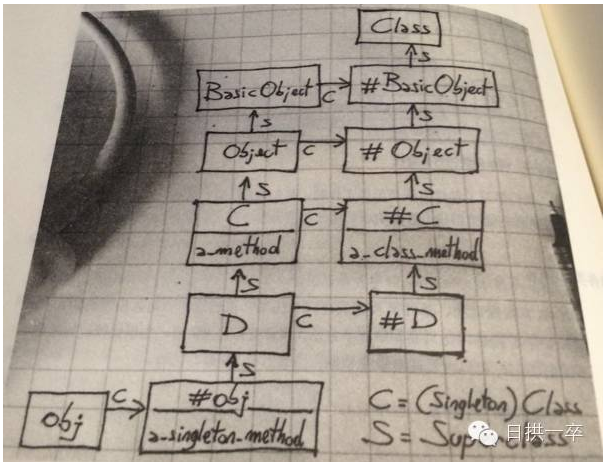 Class
S
BasicObject C #BasicObject
S S
Object C #Object
S S
C C #C
a_method a_class_method
S S
D C #D
S
obj C #obj
a_singleton_method
C = (Singleton) Class
S = Superclass
日拱一卒